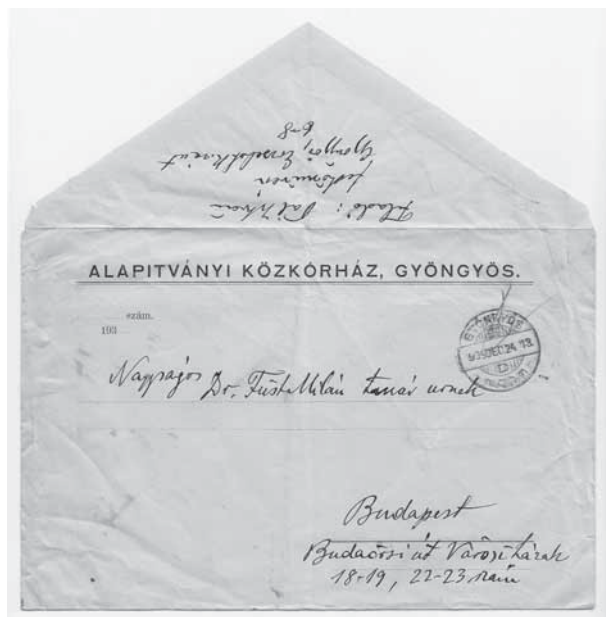 Feladó: Pál István
Gyöngyös, Erzsébet királyné út
6-8
ALAPITVÁNYI KÖZKÓRHÁZ, GYÖNGYÖS.
szám.
193
GYÖNGYÖS
935 DEC. 24
Nagyságos Dr. Füst Milán tanár urnak
Budapest
Budaörsi út Városi házak
18-19, 22-23 szám